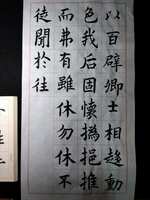 以百辟卿士相趍動
色我后固懷撝挹推
而弗有雖休勿休不
徒聞於往